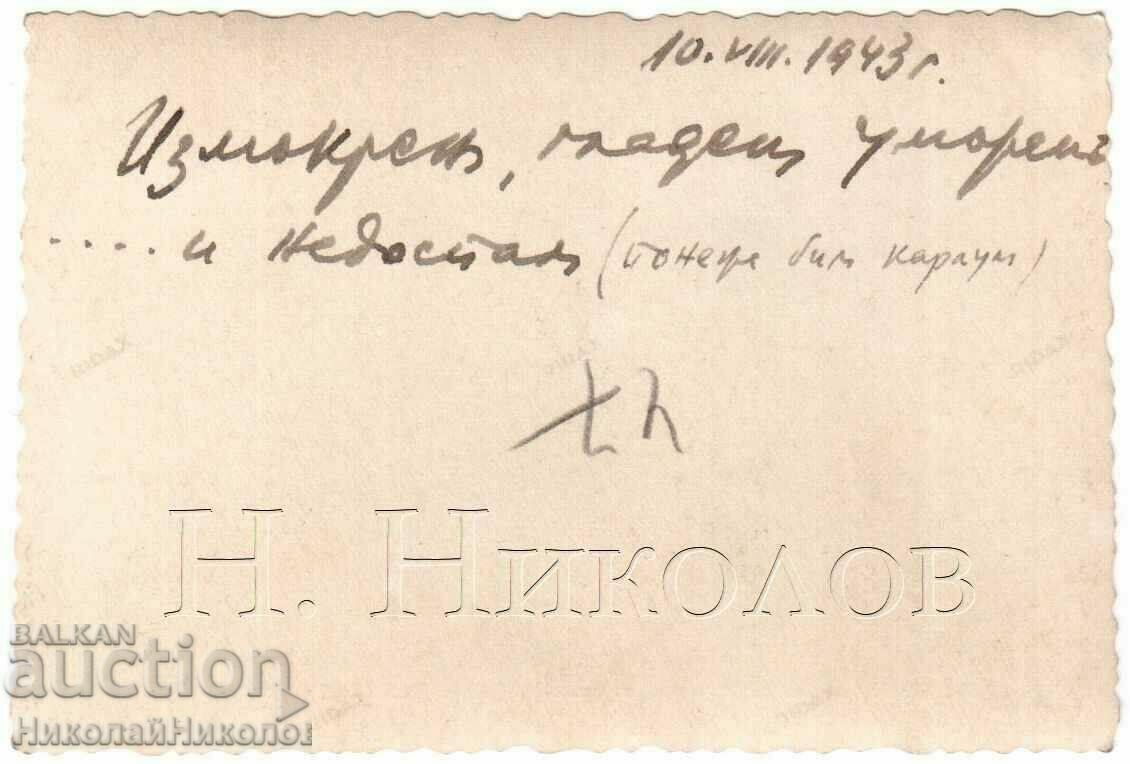 10.VIII.1943 г.
Измокренъ, гладенъ, уморенъ
..... и недоспалъ (понеже бил караул)
Н. Николов
BALKAN
auction
НиколайНиколов